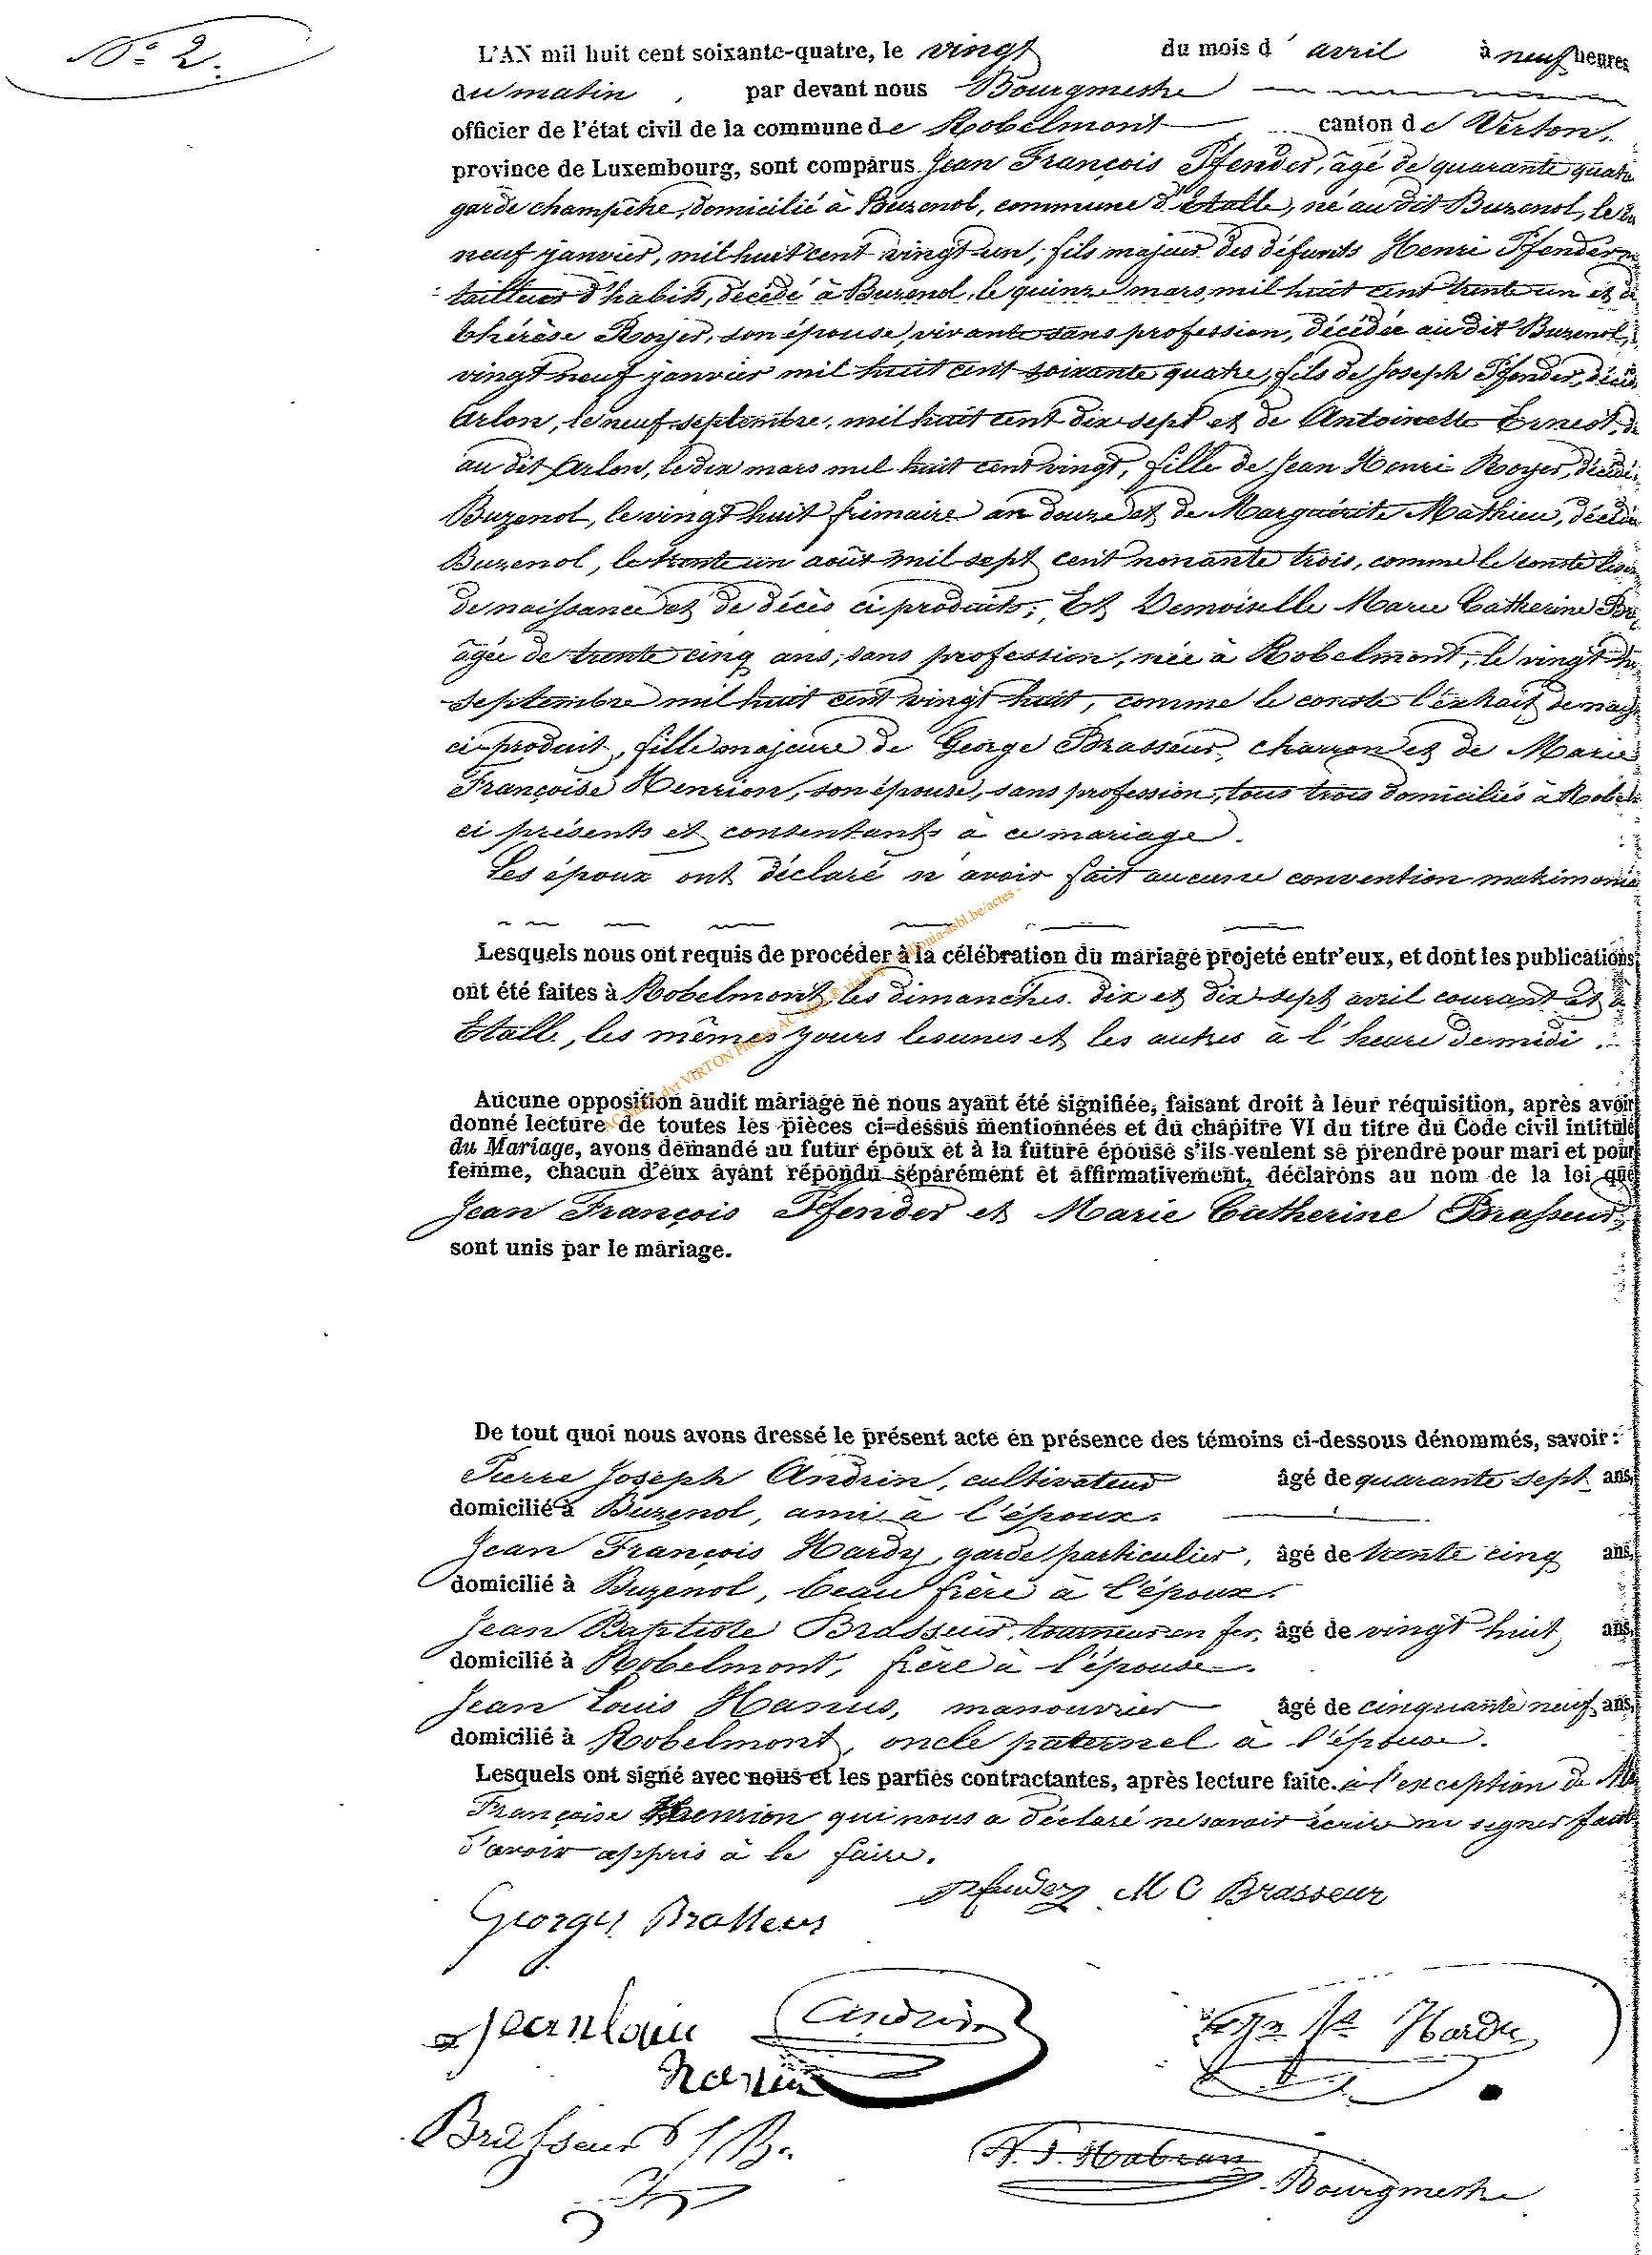 N° 2.
L'AN mil huit cent soixante-quatre, le vingt du mois d'avril à neuf heures
du matin, par devant nous Bourgmestre
officier de l'état civil de la commune de Robelmont canton de Virton,
province de Luxembourg, sont comparus Jean François Pfender, âgé de quarante quatre
garde champêtre, domicilié à Buzenol, commune d'Etalle, né au dit Buzenol, le
neuf janvier, mil huit cent vingt un, fils majeur des défunts Henri Pfender
tailleur d'habits, décédé à Buzenol, le quinze mars mil huit cent trente un et de
thérèse Royer, son épouse, vivante sans profession, décédée au dit Buzenol,
vingt neuf janvier mil huit cent soixante quatre, fils de Joseph Pfender,
Arlon, le neuf septembre, mil huit cent dix sept et de Antoinette Ernest,
au dit Arlon, le dix mars mil huit cent vingt, fille de Jean Henri Royer, décédé
Buzenol, le vingt huit frimaire an douze et de Marguérite Mathieu,
Buzenol, le trente un août mil sept cent nonante trois, comme le conste
de naissance et de décès ci produits; Et Demoiselle Marie Catherine
âgée de trente cinq ans, sans profession, née à Robelmont, le vingt
septembre mil huit cent vingt huit, comme le conste l'extrait de
ci produit, fille majeure de George Brasseur, charron et de Marie
Françoise Henrion, son épouse, sans profession, tous trois domiciliés à
ci présents et consentants à ce mariage.
Les époux ont déclaré n'avoir fait aucune convention
Lesquels nous ont requis de procéder à la célébration du mariage projeté entr'eux, et dont les publications
ont été faites à Robelmont, les dimanches dix et dix sept avril courant et à
Etalle, les mêmes jours les unes et les autres à l'heure de midi.
Aucune opposition audit mariage ne nous ayant été signifiée, faisant droit à leur réquisition, après avoir
donné lecture de toutes les pièces ci-dessus mentionnées et du chapitre VI du titre du Code civil intitulé
du Mariage, avons demandé au futur époux et à la future épouse s'ils veulent se prendre pour mari et pour
femme, chacun d'eux ayant répondu séparément et affirmativement, déclarons au nom de la loi que
Jean François Pfender et Marie Catherine Brasseur
sont unis par le mariage.
De tout quoi nous avons dressé le présent acte en présence des témoins ci-dessous dénommés, savoir:
Pierre Joseph Andrin, cultivateur âgé de quarante sept ans,
domicilié à Buzenol, ami à l'époux.
Jean François Hardy, garde particulier, âgé de trente cinq ans,
domicilié à Buzenol, beau frère à l'époux.
Jean Baptiste Brasseur, tourneur en fer, âgé de vingt huit ans,
domicilié à Robelmont, frère à l'épouse.
Jean Louis Hanus, manouvrier âgé de cinquante neuf ans,
domicilié à Robelmont, oncle paternel à l'épouse.
Lesquels ont signé avec nous et les parties contractantes, après lecture faite. à l'exception de
Françoise Henrion qui nous a déclaré ne savoir écrire ni signer faute
d'avoir appris à le faire.
Pfender M C Brasseur
George Brasseur
Jean louis Andrin Hardy
hanus
Brasseur J B.
Habran
Bourgmestre